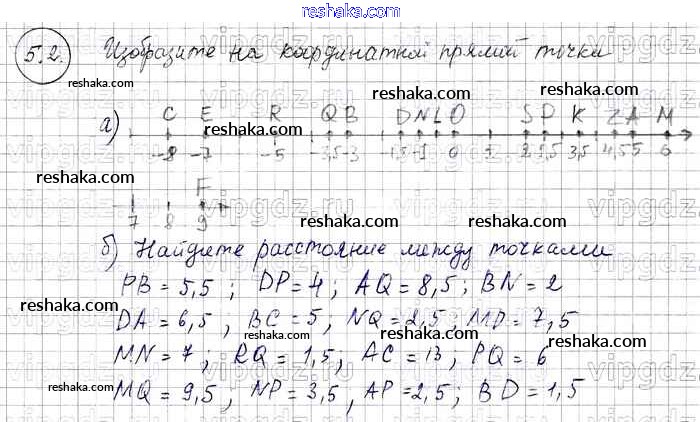 reshaka.com
5.2. Изобразите на координатной прямий точки
reshaka.com
reshaka.com
а) C E R Q B D N L O S P K Z A M
-8 -7 -5 -3,5 -3 -1,5 -1 0 1 2 2,5 3,5 4,5 5 6
reshaka.com
F
7 8 9
reshaka.com
reshaka.com
б) Найдите расстояние между точками
reshaka.com
PB = 5,5 ; DP = 4 ; AQ = 8,5 ; BN = 2
reshaka.com
DA = 6,5 , BC = 5 , NQ = 2,5 ; MD = 7,5
reshaka.com
MN = 7 ; RQ = 1,5 , AC = 13 , PQ = 6
reshaka.com
reshaka.com
MQ = 9,5 , NP = 3,5 , AP = 2,5 ; BD = 1,5
reshaka.com